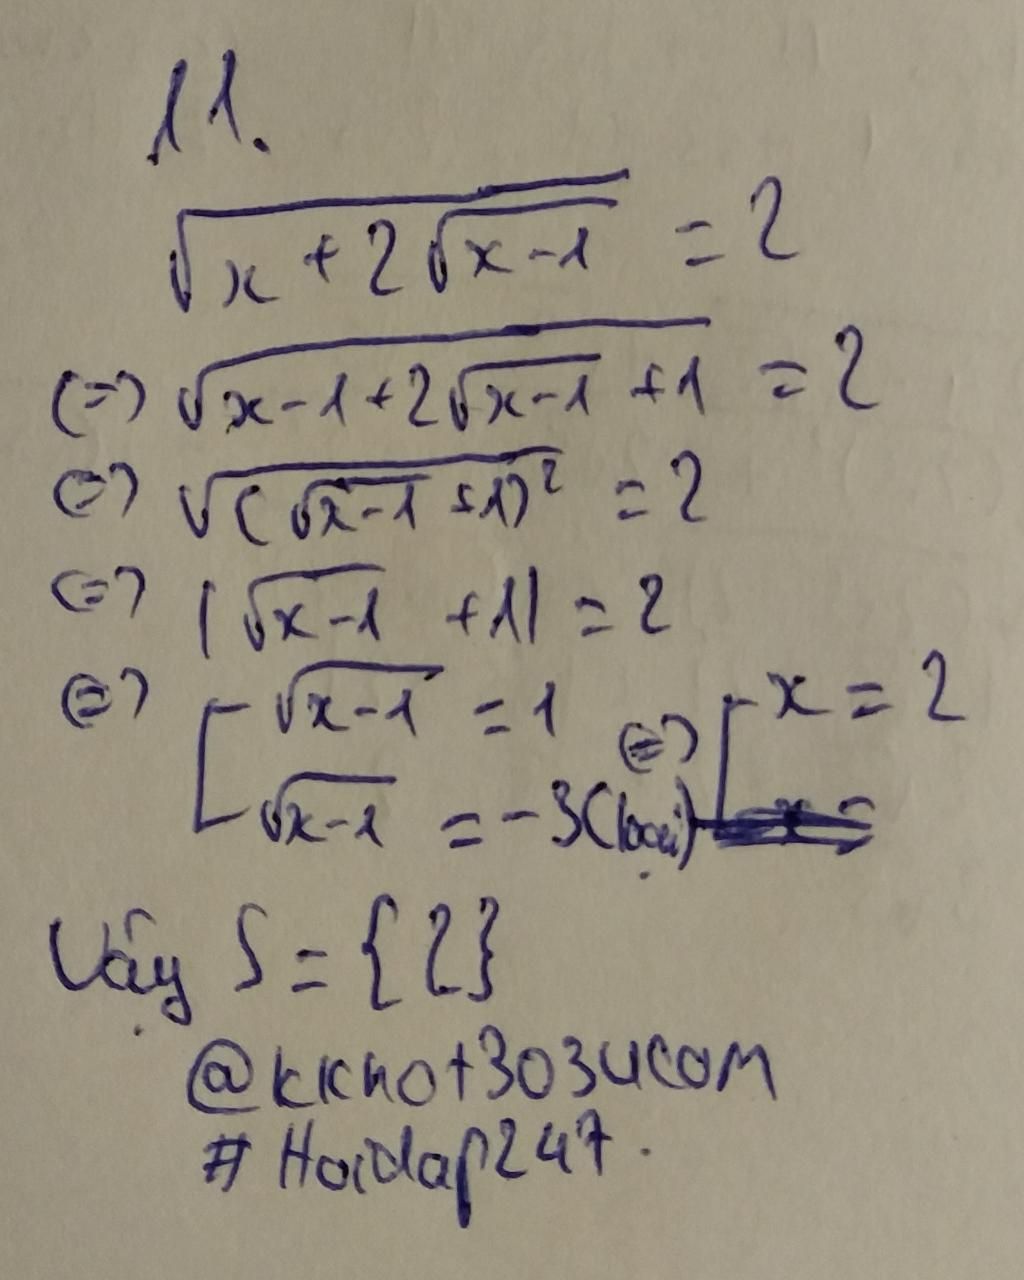 11.
√(x + 2√(x-1)) = 2
(=) √(x-1+2√(x-1) +1) = 2
(=) √((√(x-1) +1)²) = 2
(=) |√(x-1) +1| = 2
(=) [ √(x-1) = 1 (=) [ x = 2
√(x-1) = -3 (loại)
Vậy S = {2}
@kkhot3034com
#Hoidap247.